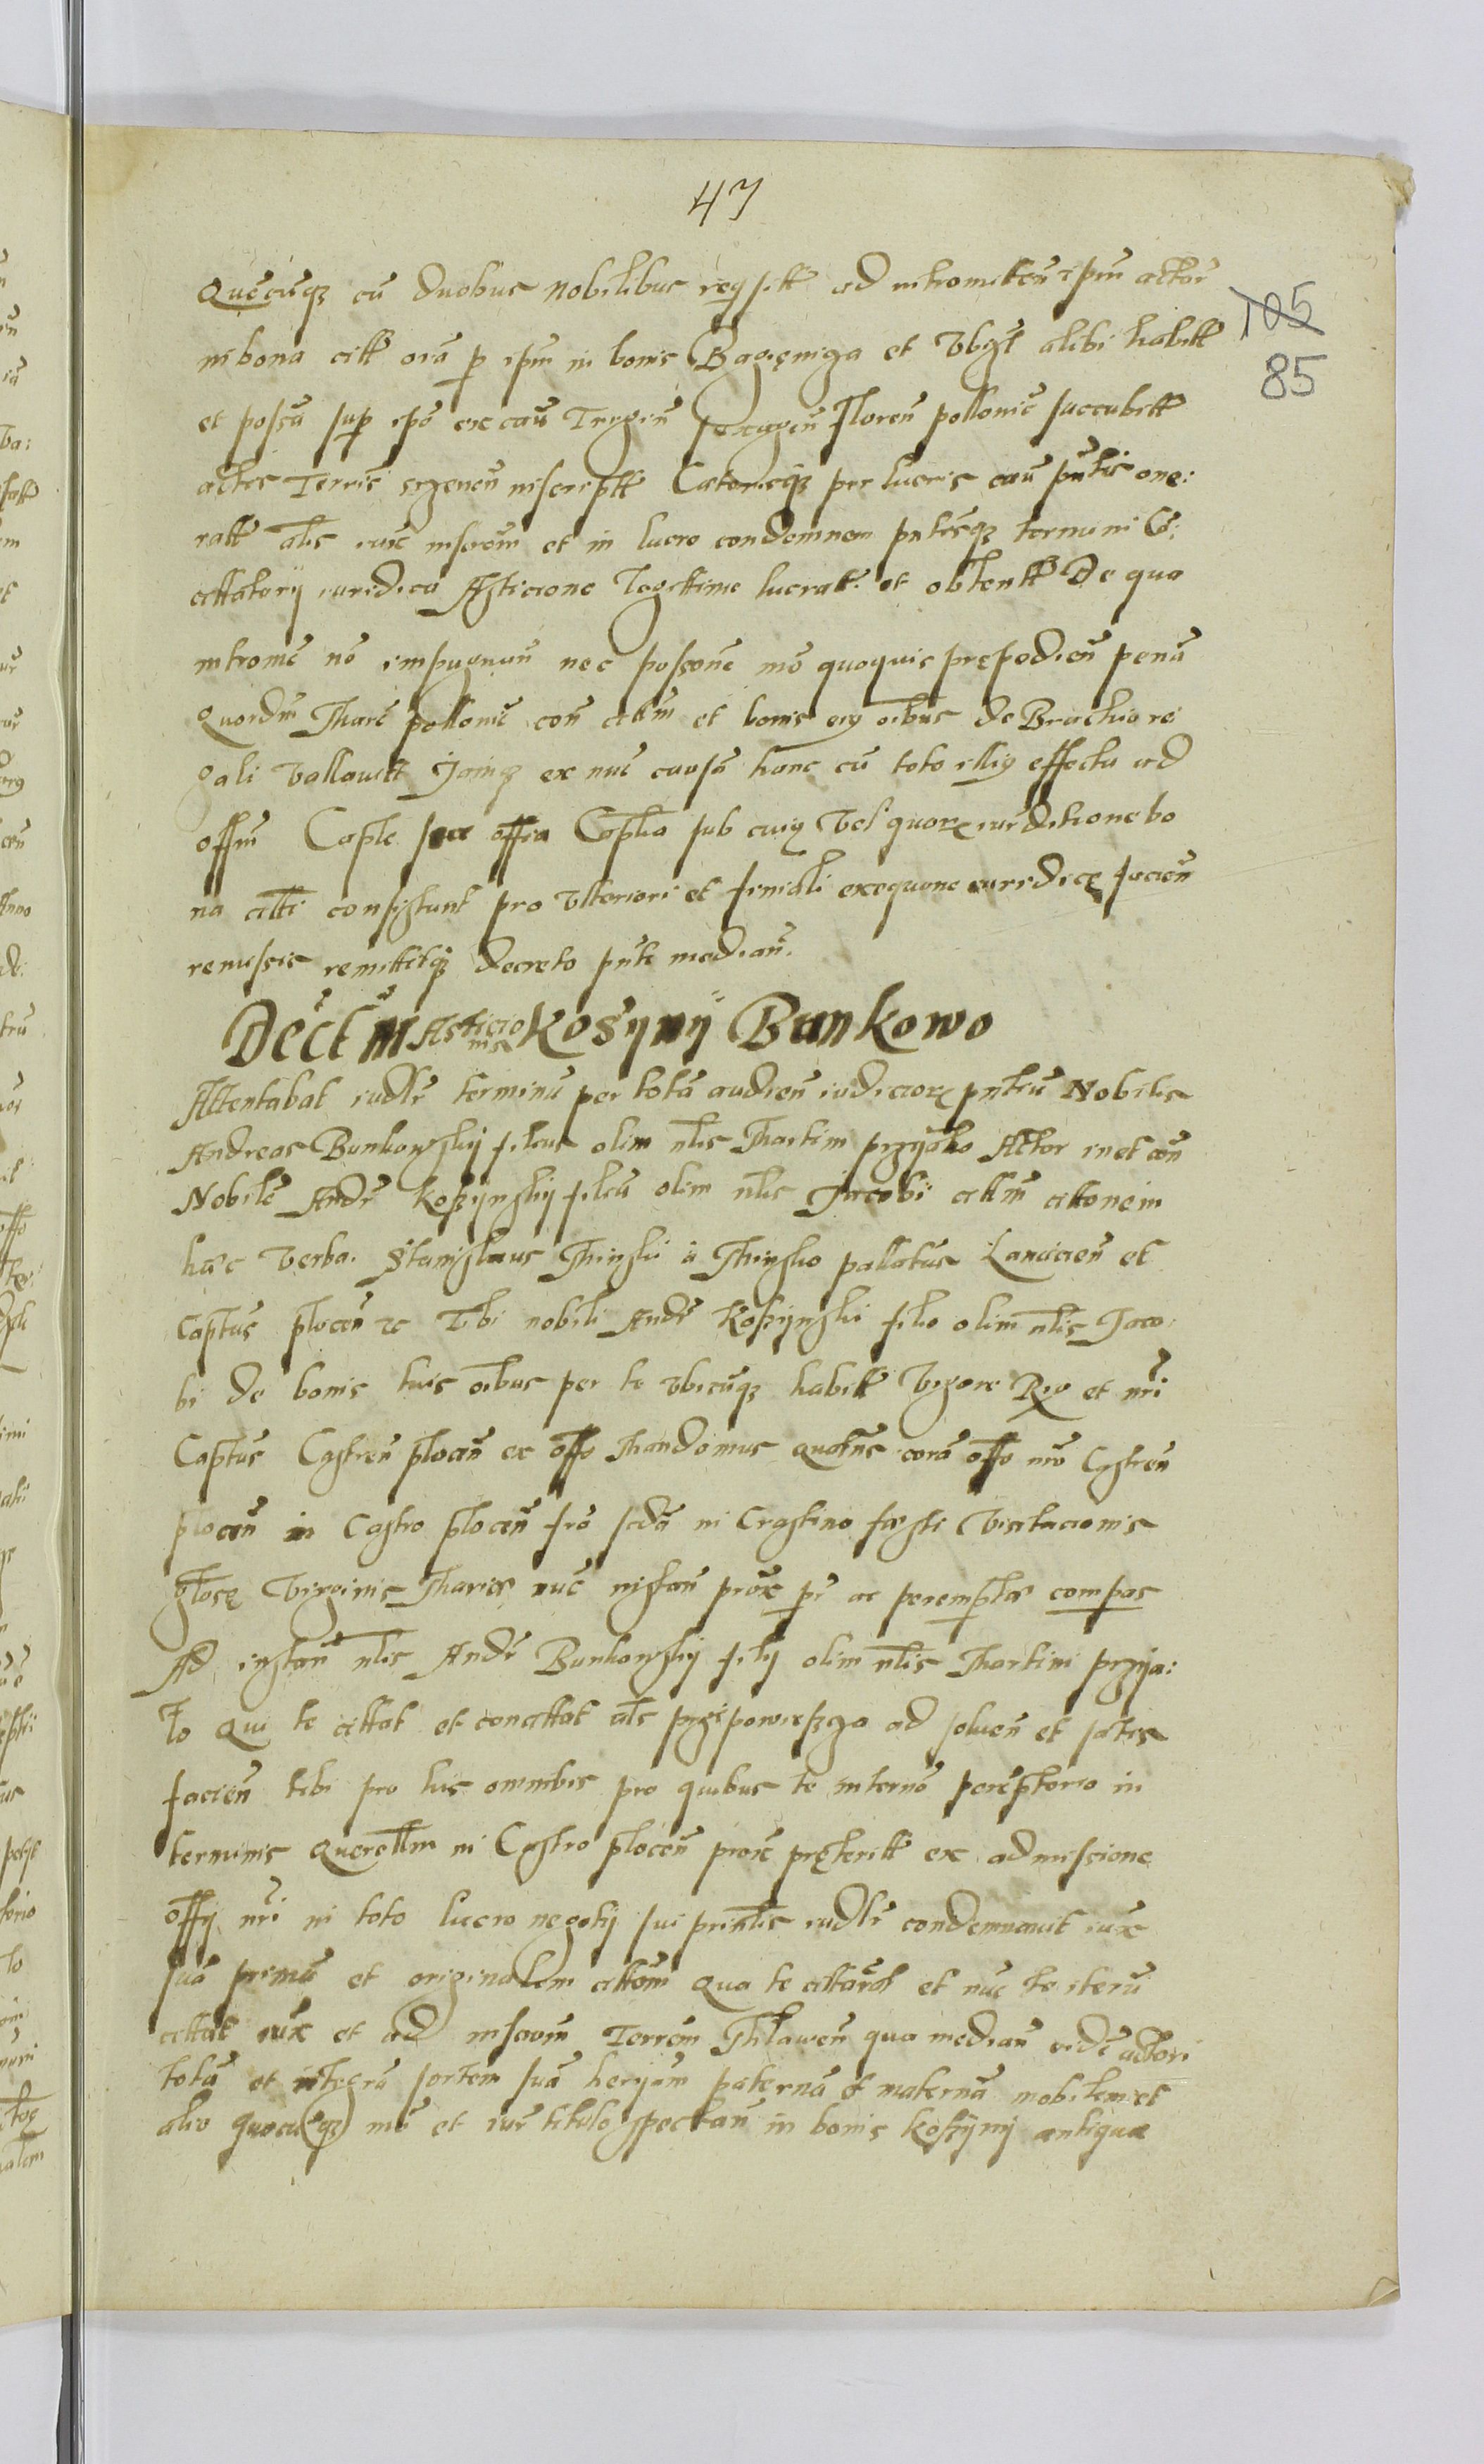 47
105
85
Quecuq cu duobus nobilibus reqsitt ad intromitten ipm actor
in bona citt oia p ipm in bonis et Vbq alibi habitt
et possa sup ipo ex cau Trigin sexagen floren pollonic succubitt
actis Terris inscriptt lucris cau pntis one:
ratt als iure inscrom et in lucro condemnem pntisq termini Co:
cittatorij iuridica Asticione legittime lucratt et obtentt De qua
introme no impugnan nec possone mo quoquis prępedien pena
Quordm Marc pollonic con cittm et bonis eiq oibus de Brachio re
gali vallavitt ex nuc causa hanc cu toto illiq effectu ad
offm Caple seu offia Caplia sub cuiq vel quorx iurditione bo
na citti consistunt pro vlteriori et finiali exequone iuridicę facien
remissis remittitq decreto pnte median.
Decrt in Asticio nis Kosyny Bunkowo
Attentabat iudlr terminu per tota audien iudiciorx pntiu Nobilis
Andreas Bunkowskij filius olim nlis Martini przyialko Actor in et con
Nobile Andr Koszynskij filiu olim nlis Jacobi cittm cittone in
hac verba. Stanislaus Minski a Minsko pallatus Lancicien et
Captus plocen zc Tibi nobili Andr Koszynski filio olim nlis Jaco:
bi de bonis tuis oibus per te vbicuq habitt Vigore Rg et nri
Captus Castren plocen ex offo Mandamus quatns cora offo nro Castren
plocen in Castro plocen fra scda in Crastino festi Visitacionis
gtosę Virginis Marię nuc instan prox pr ac peremptr compas
Ad instan nlis Andr Bunkowskij filij olim nlis Martini przyia:
lo Qui te cittat et concittat als przipowirszga ad soluen et satis
facien tibi pro his omnibus pro quibus te in termo peremptorio in
terminis Querellm in Castro plocen prox pręteritt ex admissione
offij nri in toto lucro negotij sui prinlis iudlr condemnauit iux
sua prima et originalem cittom qua te cittarat et nuc te iteru
cittat iux et ad inscrom Terrem Mlawen qua median eide actori
tota et integra sortem sua heryam paterna et materna mobilem et
alio quocuq mo et iur titulo spectan in bonis Koszyny antiqua